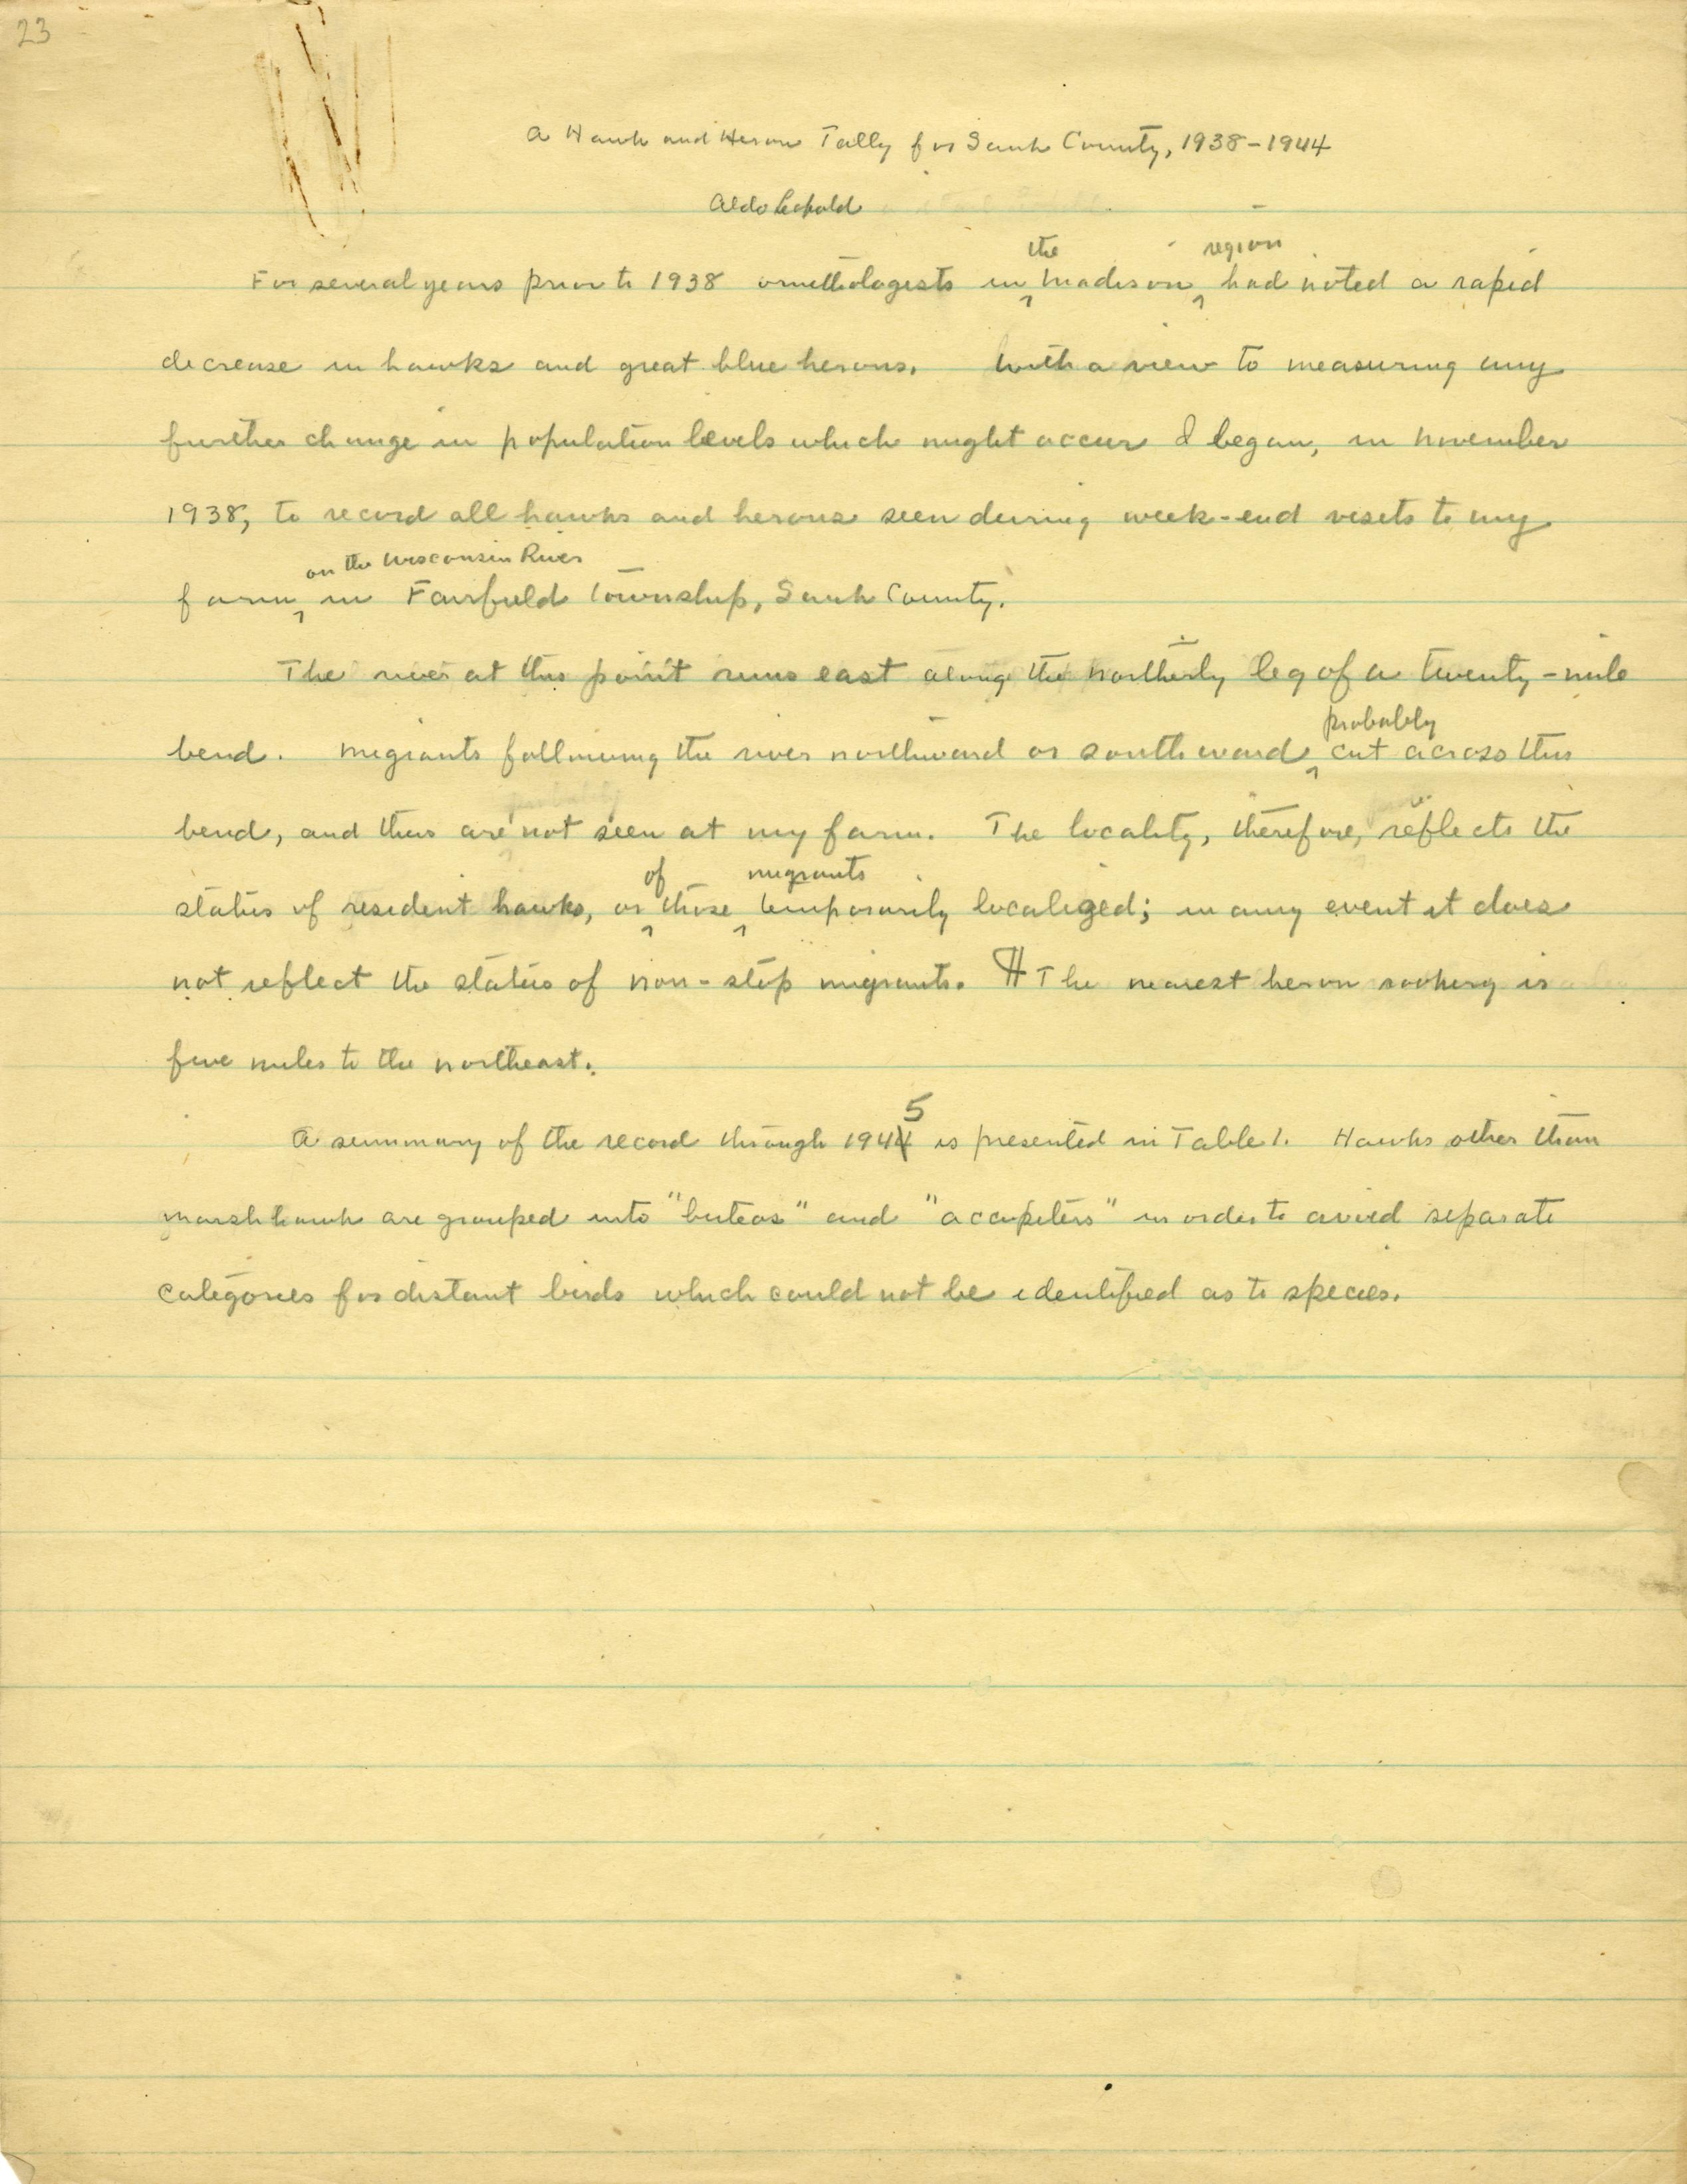 23
A Hawk and Heron Tally for Sauk County, 1938-1944
Aldo Leopold
For several years prior to 1938 ornithologists in the Madison region had noted a rapid
decrease in hawks and great blue herons. With a view to measuring any
further change in population levels which might occur I began, in November
1938, to record all hawks and herons seen during week-end visits to my
farm on the Wisconsin River in Fairfield Township, Sauk County.
The river at this point runs east along the northerly leg of a twenty-mile
bend. Migrants following the river northward or southward probably cut across this
bend, and thus are not seen at my farm. The locality, therefore, reflects the
status of resident hawks, or of those migrants temporarily localized; in any event it does
not reflect the status of non-stop migrants. ¶ The nearest heron rookery is
five miles to the northeast.
A summary of the record through 1945 is presented in Table 1. Hawks other than
marsh hawk are grouped into "buteos" and "accipiters" in order to avoid separate
categories for distant birds which could not be identified as to species.